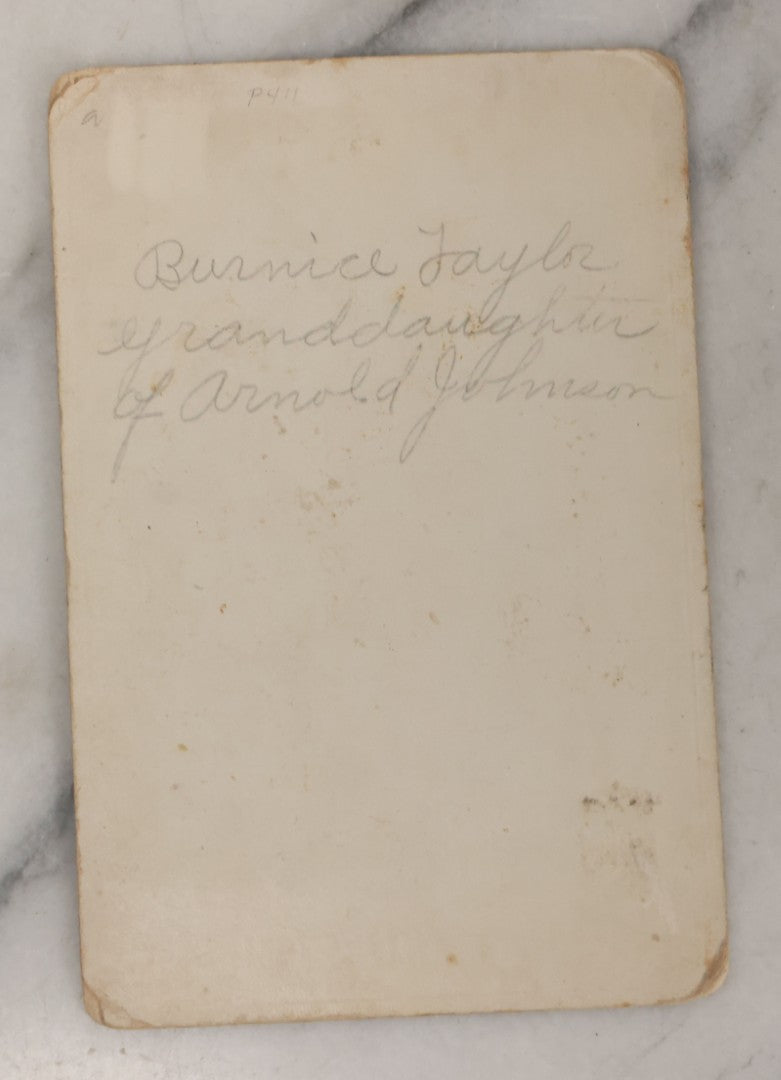 P411
a
Burnice Taylor
granddaughter
of Arnold Johnson